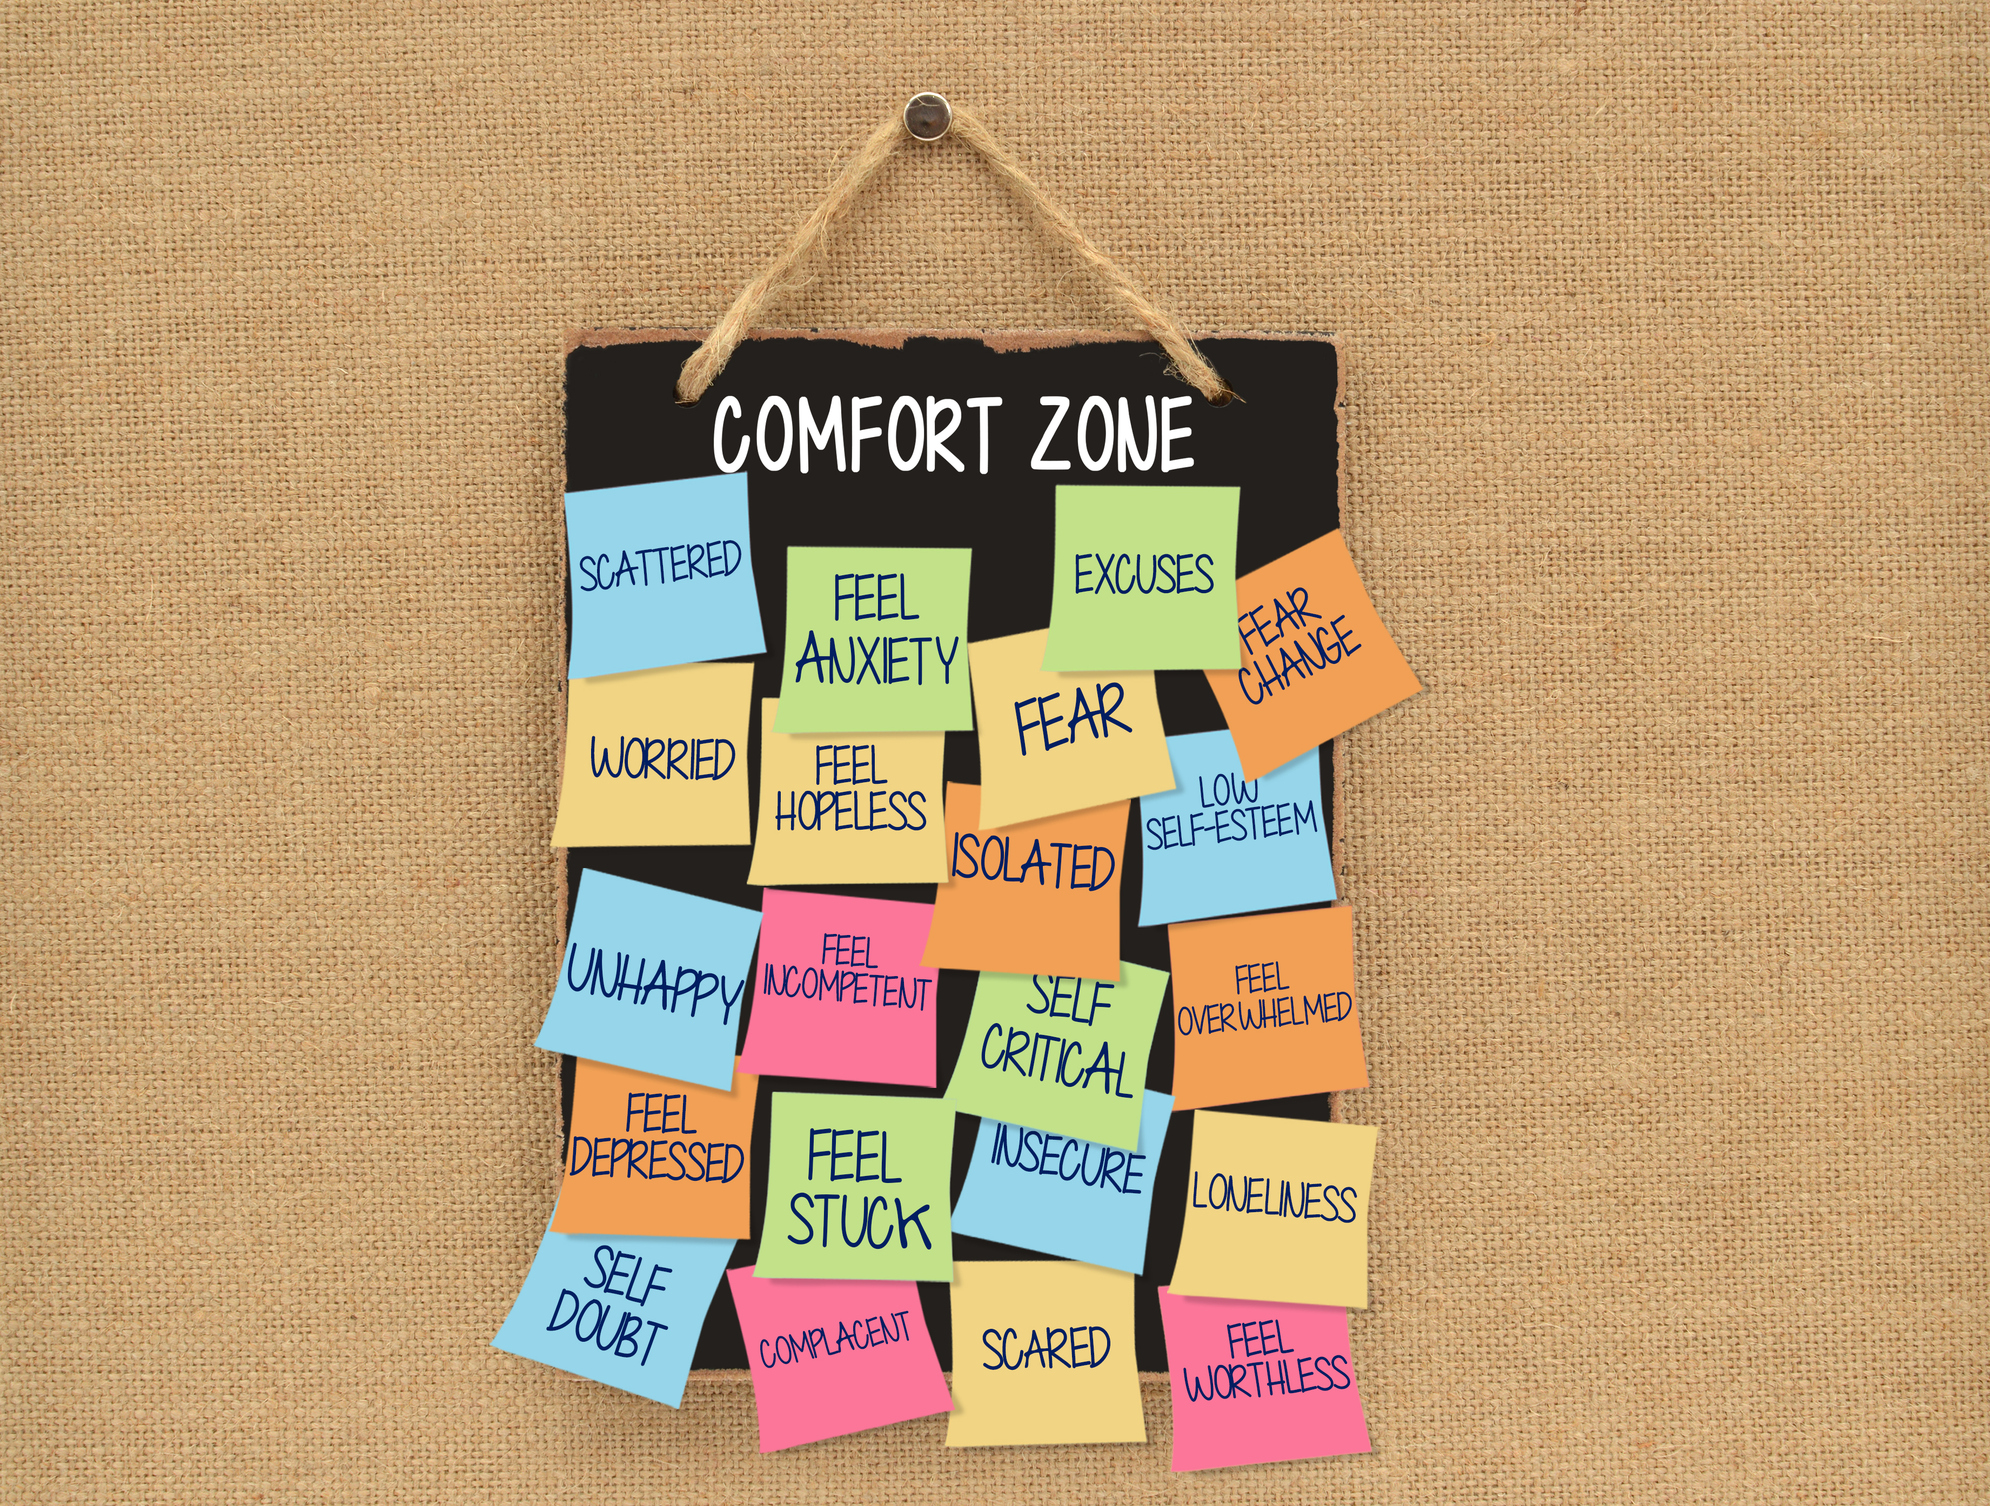 COMFORT ZONE
SCATTERED
FEEL
ANXIETY
EXCUSES
FEAR
CHANGE
WORRIED
FEEL
HOPELESS
FEAR
ISOLATED
LOW
SELF-ESTEEM
UNHAPPY
FEEL
INCOMPETENT
SELF
CRITICAL
FEEL
OVERWHELMED
FEEL
DEPRESSED
FEEL
STUCK
INSECURE
LONELINESS
SELF
DOUBT
COMPLACENT
SCARED
FEEL
WORTHLESS